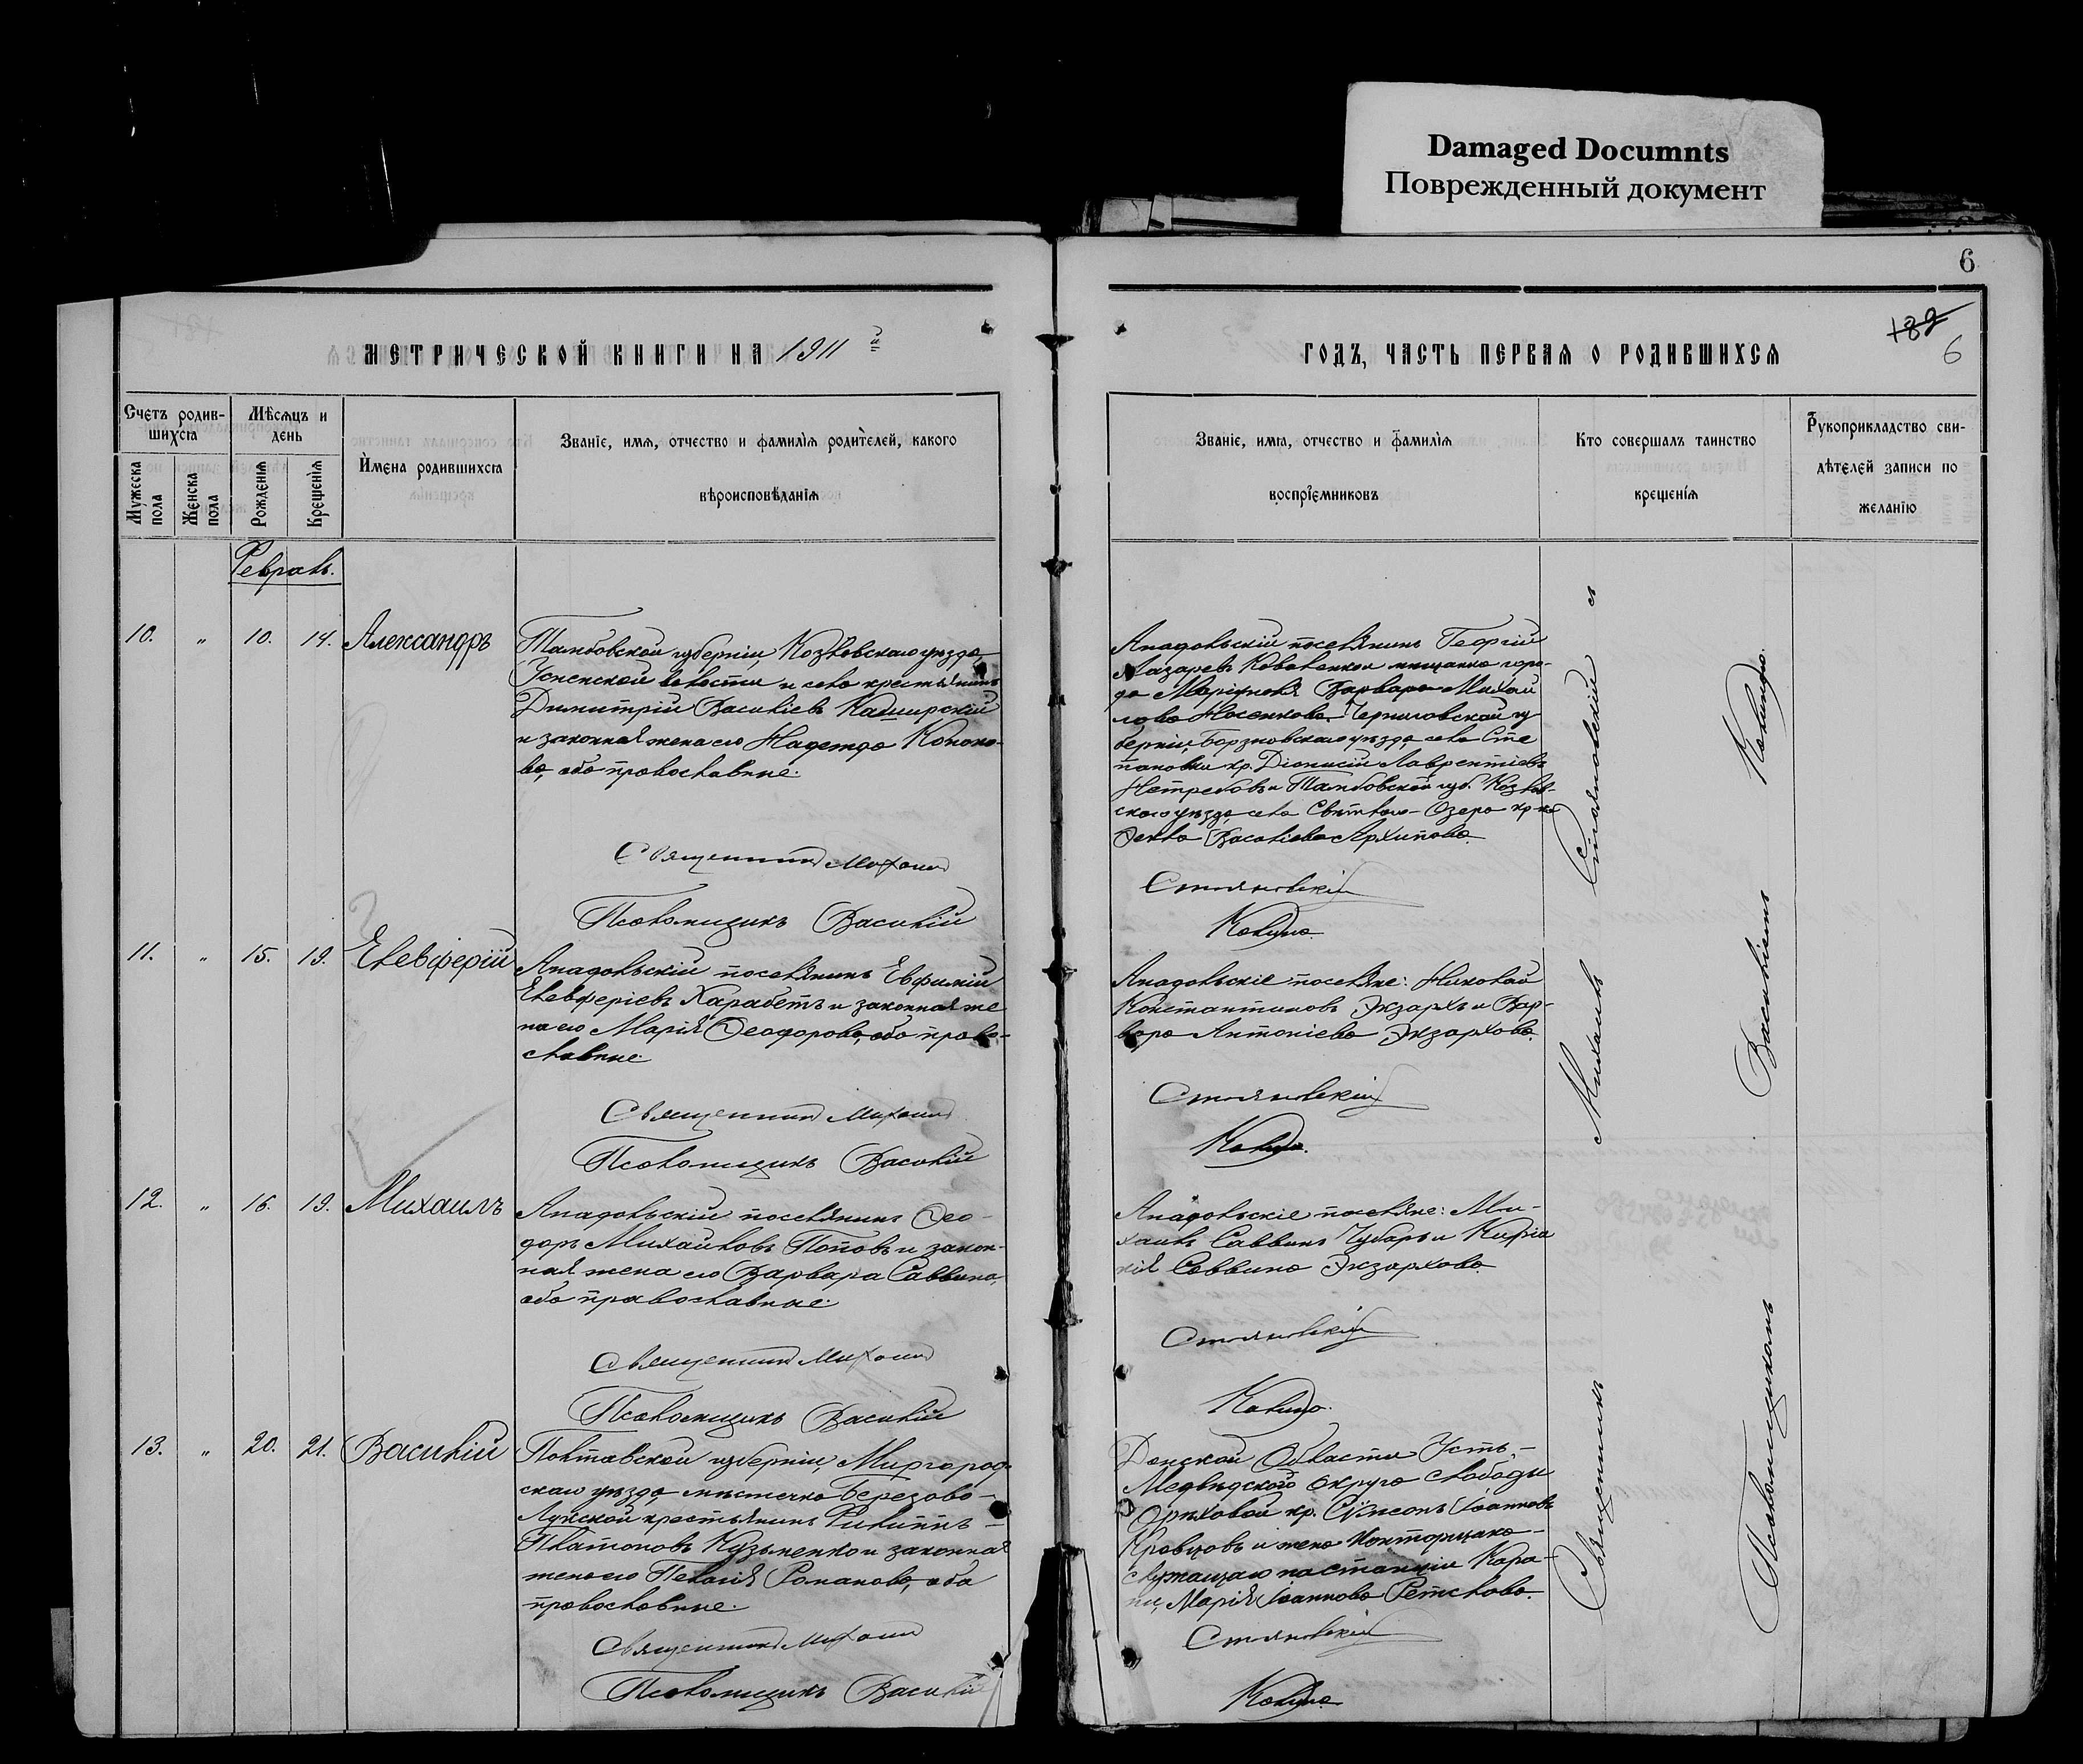 Damaged Documnts
Поврежденный документ
6
182
6
МЕТРИЧЕСКОЙ КНИГИ НА 1911 й
ГОДЪ, ЧАСТЬ ПЕРВАЯ О РОДИВШИХСЯ
Счетъ родив-
шихся
Мѣсяцъ и
день
Мужеска
пола
Женска
пола
Рожденія
Крещенія
Имена родившихся
Званіе, имя, отчество и фамилія родителей, какого
вѣроисповѣданія
Званіе, имя, отчество и фамилія
воспріемниковъ
Кто совершалъ таинство
крещенія
Рукоприкладство сви-
дѣтелей записи по
желанію
Февраль.
10. " 10. 14. Александръ
Тамбовской губерніи, Козловскаго уѣзда,
Успенской волости и села крестьянинъ
Димитрій Василіевъ Кашмирскій
и законная жена его Надежда Конono-
ва, оба православные.
Священникъ Михаилъ
Псаломщикъ Василій
Анадольскій поселянинъ Георгій
Лазаревъ Коваленко и мѣщанка горо-
да Маріуполя Варвара Михай
лова Носенкова. Черниговской гу
берніи, Борзновскаго уѣзда, села Сте
пановки кр. Діонисій Лаврентіевъ
Нетребовъ и Тамбовской губ. Козлов-
скаго уѣзда, села Свѣтлаго-Озера кр-ка
Фекла Василіева Архипова.
Стояновскій
Кальцо.
11. " 15. 19. Елевферій
Анадольскій поселянинъ Евфимій
Елевферіевъ Харабетъ и законная же
на его Марія Феодорова, оба право-
славные.
Священникъ Михаилъ
Псаломщикъ Василій
Анадольскіе поселяне: Николай
Константиновъ Экзархъ и Вар-
вара Антоніева Экзархова.
Стояновскій
12. " 16. 19. Михаилъ
Анадольскій поселянинъ Фео-
доръ Михайловъ Поповъ и закон-
ная жена его Варвара Саввина,
оба православные.
Священникъ Михаилъ
Псаломщикъ Василій
Анадольскіе поселяне: Ми-
хаилъ Саввинъ Чубаръ и Киріа
кія Саввина Экзархова.
Стояновскій
13. " 20. 21. Василій
Полтавской губерніи, Миргород-
скаго уѣзда, мѣстечка Березово-
Лукской крестьянинъ Филиппъ
Платоновъ Кузьменко и законная
жена его Пелагія Романова, оба
православные.
Священникъ Михаилъ
Псаломщикъ Василій
Донской Области Усть-
Медвѣдскаго округа слободы
Орѣховой кр. Сѵмеонъ Іоанновъ
Кравцовъ и жена конторщика-
служащаго на станціи Кара-
ни, Марія Іоаннова
Стояновскій
Священникъ Михаилъ Стояновскій съ
Псаломщикомъ Василіемъ